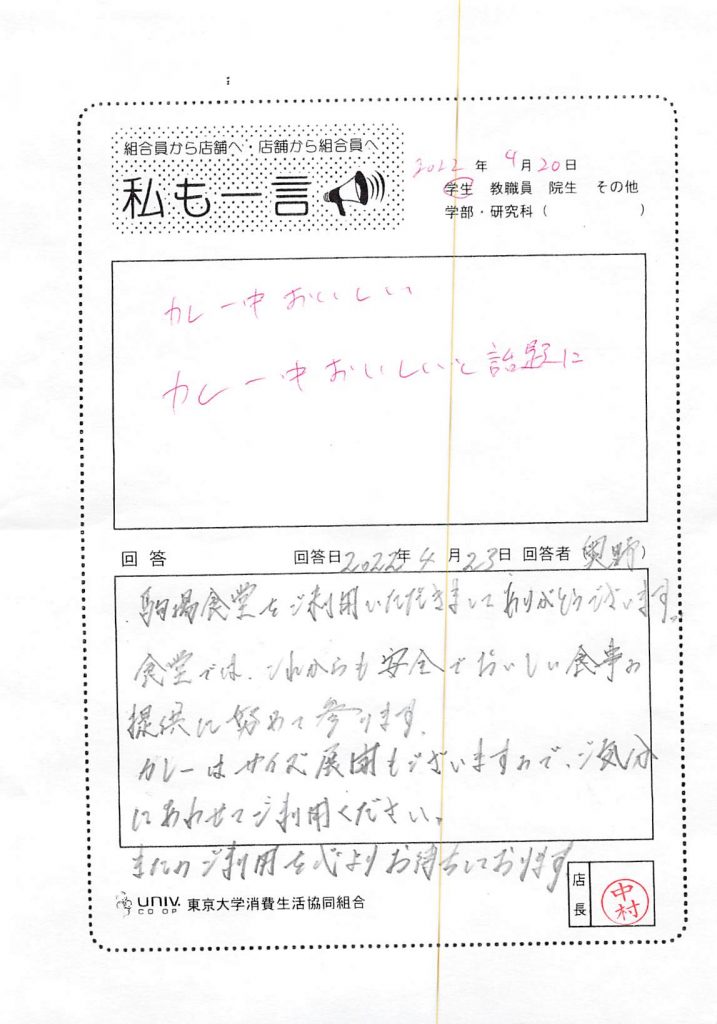 組合員から店舗へ・店舗から組合員へ
私も一言
2022年 4月20日
学生 教職員 院生 その他
学部・研究科( )
カレー中おいしい
カレー中おいしいと話題に
回答 回答日2022年4月23日 回答者(奥野)
駒場食堂をご利用いただきましてありがとうございます。
食堂では、これからも安全でおいしい食事の
提供に努めて参ります。
カレーはサイズ展開もございますので、ご気分
にあわせてご利用ください。
またのご利用を心よりお待ちしております
UNIV. CO-OP 東京大学消費生活協同組合
店長 中村